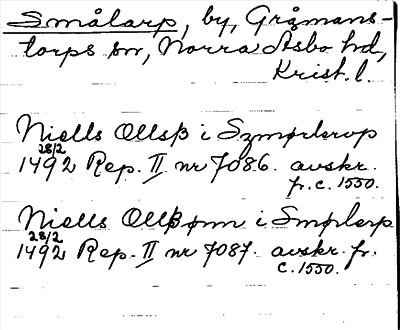 Smålarp, by, Gråmans-
torps sn, Norra Åsbo hd,
Krist. l.
Niells Ollsß i Szmørlerup
28/2
1492 Rep. II nr 7086. avskr.
fr. c. 1550.
Niells Ollßønn i Smørlarp
28/2
1492 Rep. II nr 7087. avskr. fr.
c. 1550.